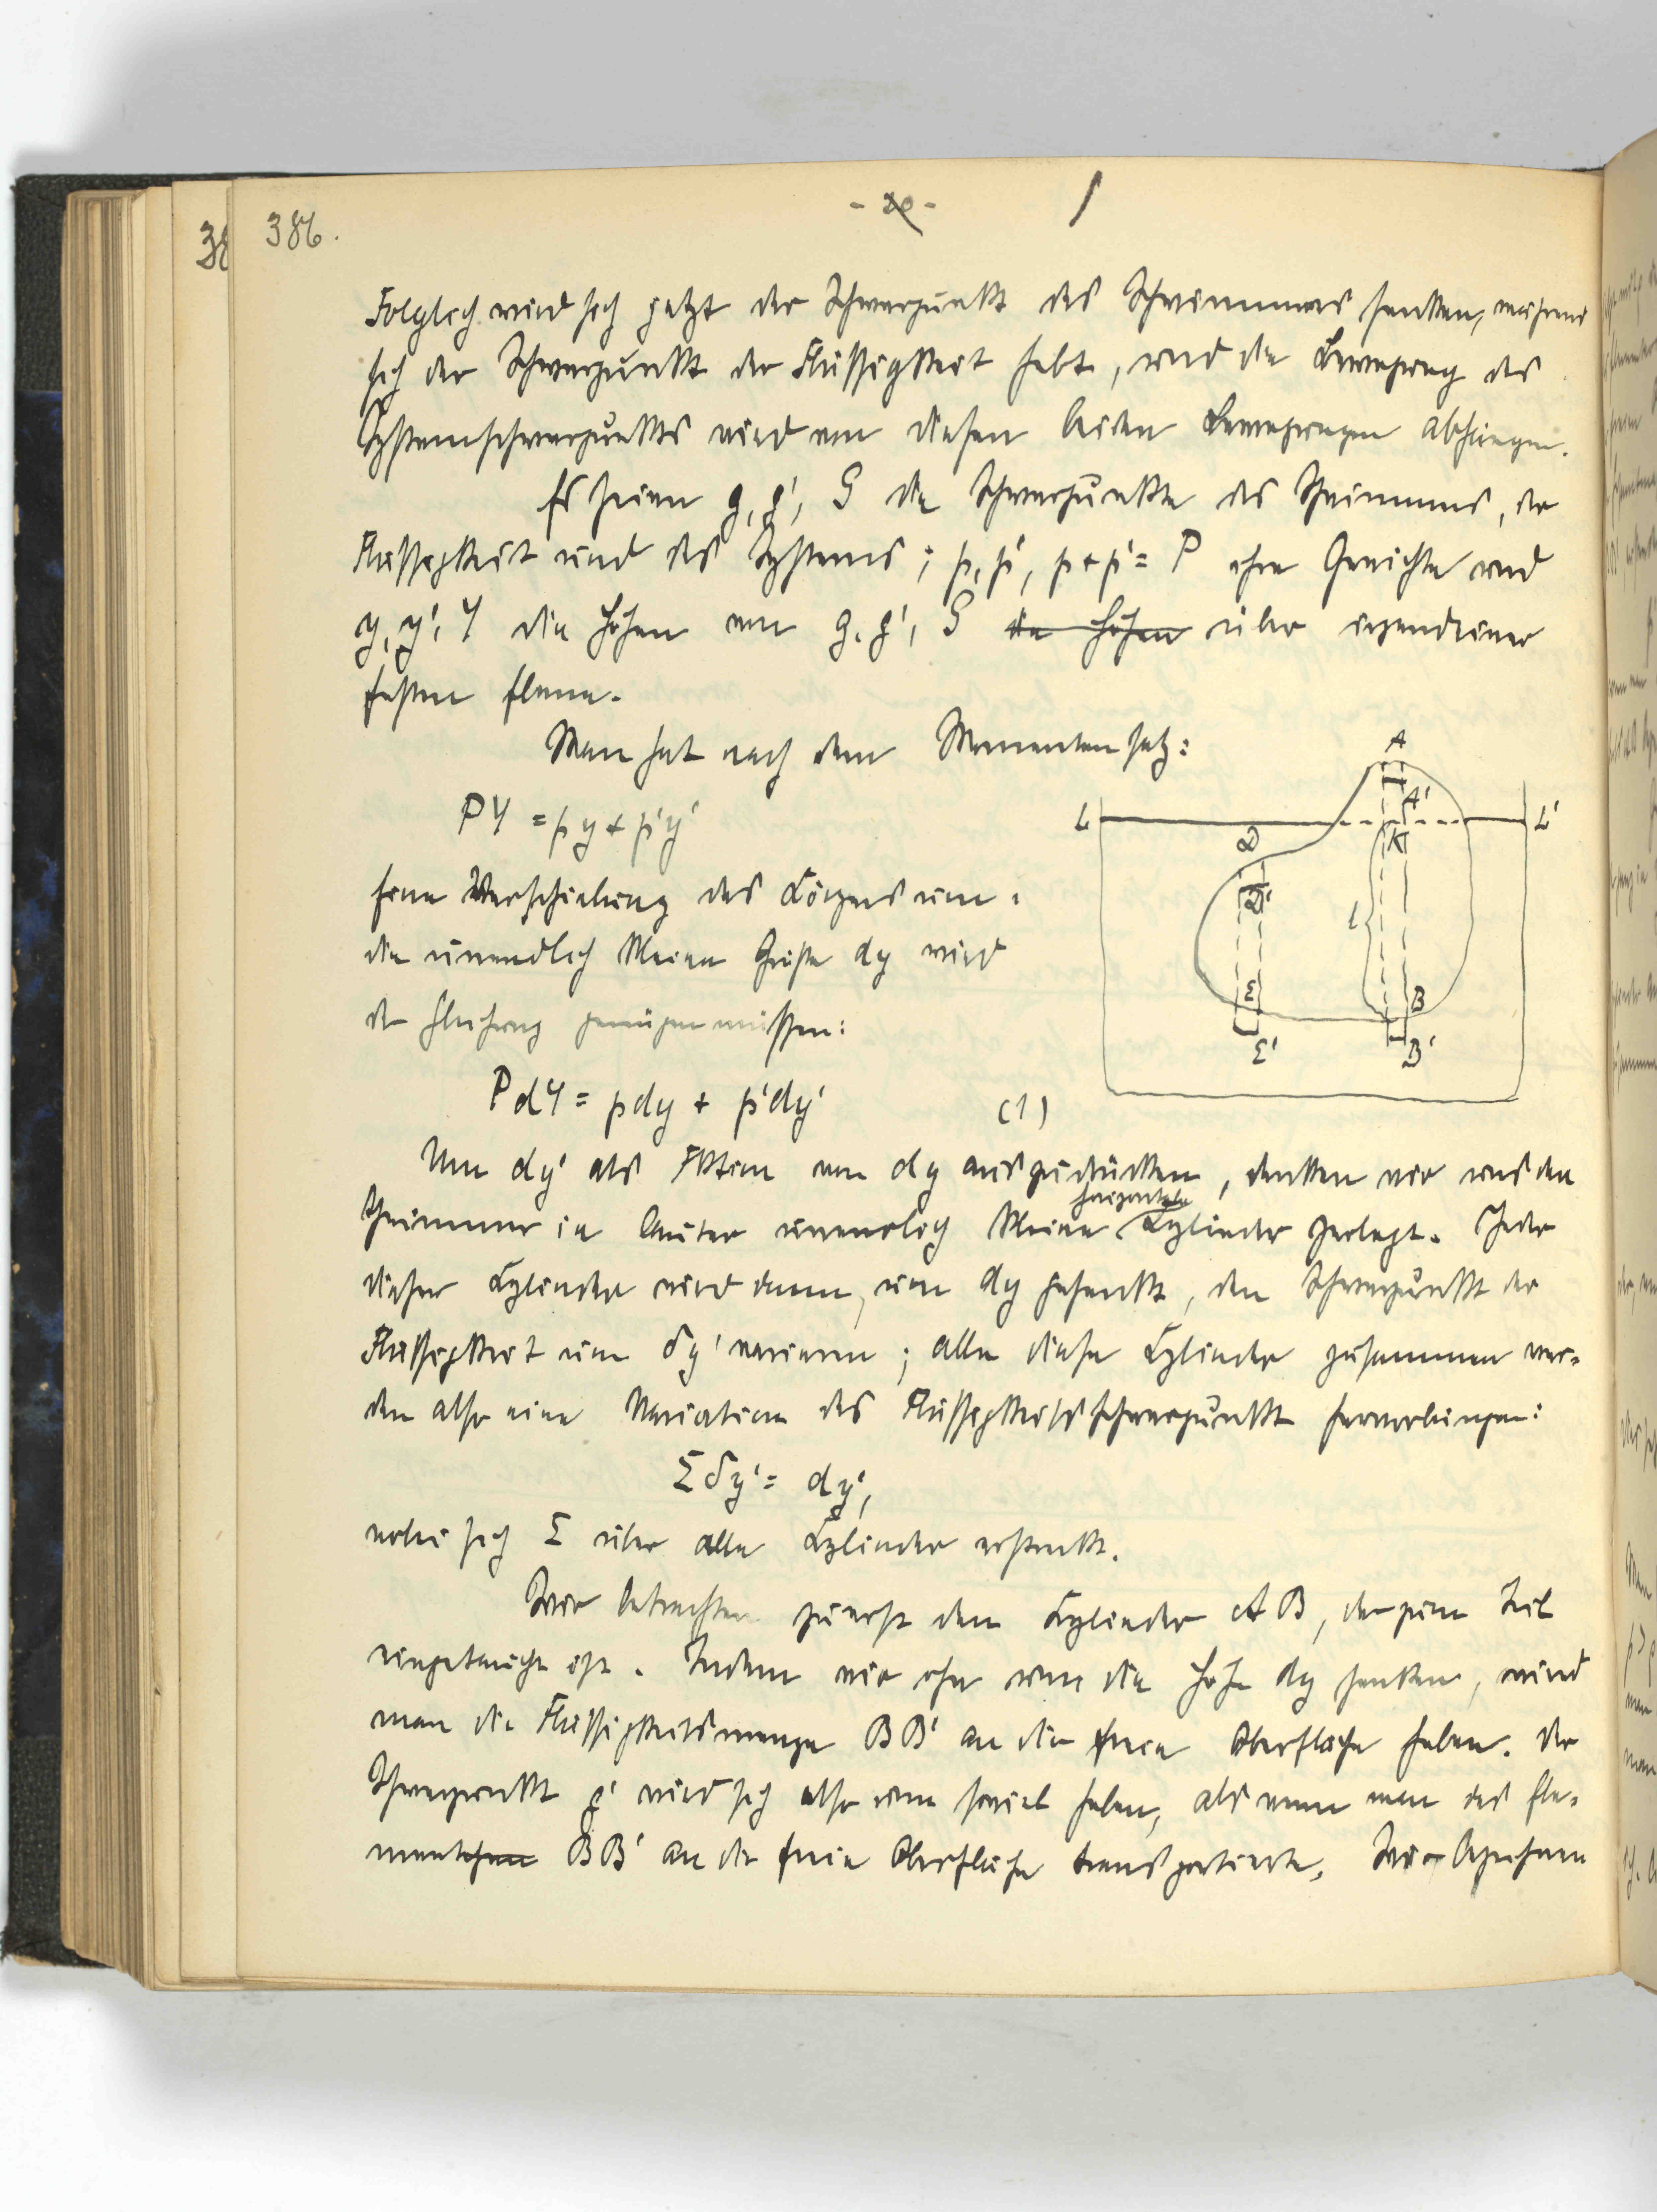 386.
- 20 -
Folglich wird sich jetzt der Schwerpunkt des Schwimmers senken, während
sich der Schwerpunkt der Flüssigkeit hebt, und die Bewegung des
Systemschwerpunktes wird von diesen beiden Bewegungen abhängen.
Es seien g, g', G die Schwerpunkte des Schwimmers, der
Flüssigkeit und des Systems; p, p', p+p' = P ihre Gewichte und
y, y', Y die Höhen von g, g', G die Höhen über irgendeiner
festen Ebene.
Man hat nach dem Momentensatz:
PY = py + p'y'
Eine Verschiebung des Körpers um
die unendlich kleine Größe dy wird
der Gleichung genügen müssen:
PdY = pdy + p'dy' (1)
A
A'
L
L'
K
D
D'
l
E
E'
B
B'
Um dy' als Fktion von dy auszudrücken, denken wir uns den
horizontale
Schwimmer in lauter unendlich kleine Cylinder zerlegt. Jeder
dieser Cylinder wird dann, um dy gesenkt, den Schwerpunkt der
Flüssigkeit um δy' variieren; alle diese Cylinder zusammen wer-
den also eine Variation des Flüssigkeitsschwerpunkt hervorbringen:
Σδy' = dy',
wobei sich Σ über alle Cylinder erstreckt.
Wir betrachten zuerst den Cylinder AB, der zum Teil
eingetaucht ist. Indem wir ihn um die Höhe dy senken, wird
man die Flüssigkeitsmenge BB' an die freie Oberfläche heben. Der
Schwerpunkt g' wird sich also um soviel heben, als wenn man das Ele-
ment BB' an die freie Oberfläche transportierte. Wir bezeichnen